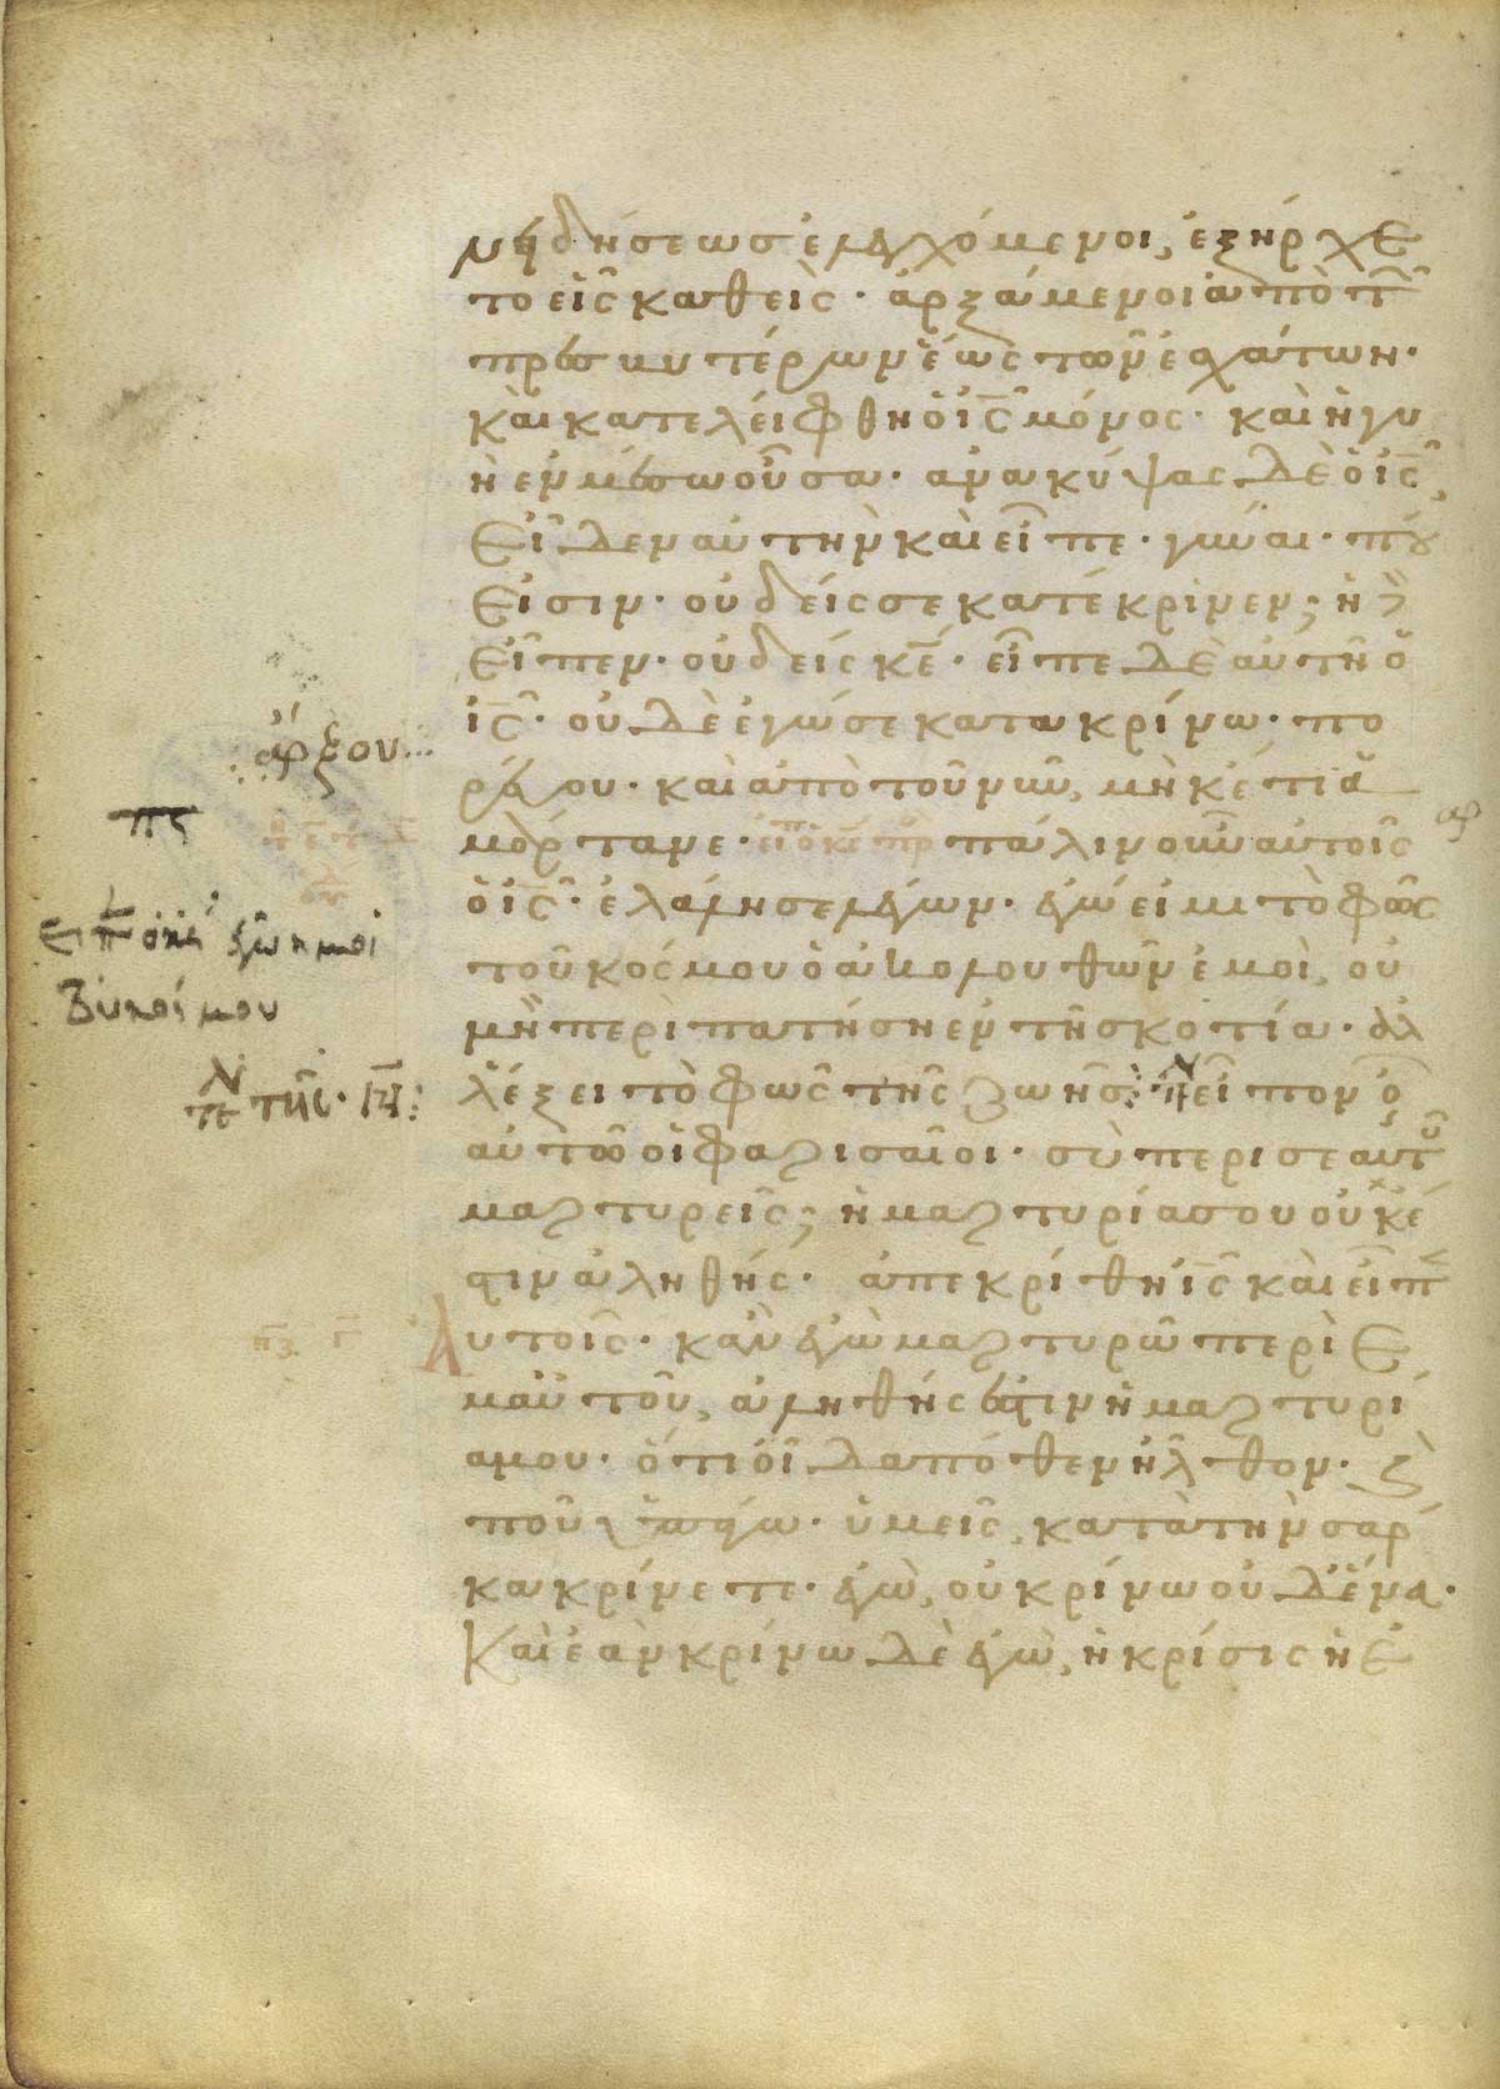 νειδήσεως ἐλεγχόμενοι, ἐξήρχε
το εἷς καθεῖς· ἀρξάμενοι ἀπὸ τῶ̑
πρεσβυτέρων ἕως τῶν ἐσχάτων·
καὶ κατελείφθη ὁ ις̅ μόνος· καὶ ἡ γυ
νὴ ἐν μέσω οὖσα· ἀνακύψας δὲ ὁ ις̅,
εἶδεν αὐτὴν καὶ εἶπε· γύναι· ποῦ
εἰσιν· οὐδείς σε κατέκρινεν; ἡ δὲ
εἶπεν· οὐδείς κε̅· εἶπε δὲ αὐτῆ ὁ
ις̅· οὐδὲ ἐγώ σε κατακρίνω· πο
ρεύου· καὶ ἀπὸ τοῦ νῦν, μηκέτι ἁ
μάρτανε· πάλιν οὖν αὐτοῖς
ὁ ις̅· ἐλάλησε λέγων· ἐγώ εἰμι τὸ φῶς
τοῦ κόσμου ὁ ἀκολουθῶν ἐμοὶ, οὐ
μὴ περιπατήση ἐν τῆ σκοτία· ἀλ
λ' ἕξει τὸ φῶς τῆς ζωῆς: εἶπον ὀ
αὐτῶ οἱ φαρισαῖοι· σὺ περὶ σεαυτοῦ
μαρτυρεῖς; ἡ μαρτυρία σου οὐκ ἔ
στιν ἀληθής· ἀπεκρίθη ις̅ καὶ εἶπεν
αὐτοῖς· κἂν ἐγὼ μαρτυρῶ περὶ ἐ
μαυτοῦ, ἀληθής ἐστιν ἡ μαρτυρί
α μου· ὅτι οἶδα πόθεν ἦλθον· καὶ
ποῦ ὑπάγω· ὑμεῖς, κατὰ τὴν σάρ
κα κρίνετε· ἐγὼ, οὐ κρίνω οὐδένα·
Καὶ ἐὰν κρίνω δὲ ἐγὼ, ἡ κρίσις ἡ ἐ
ἄρξου
πς
τῆς· Ν̅:
πζ γ̅